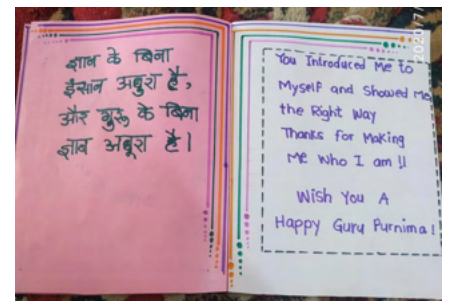 ज्ञान के बिना
इंसान अधुरा है,
और गुरु के बिना
ज्ञान अधूरा है।
You Introduced Me to
Myself and Showed Me
the Right Way
Thanks for Making
Me Who I am !!
Wish You A
Happy Guru Purnima!
2020/7/